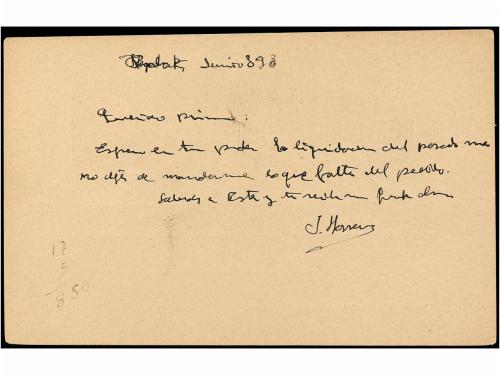 Junio 898
Querido primo:
Espero en tu poder la liquidacion del pasado mes
no dejes de mandarme lo que falta del pedido.
Saludos a Esta y tu recibe un
J. Herrera
17
5
850.